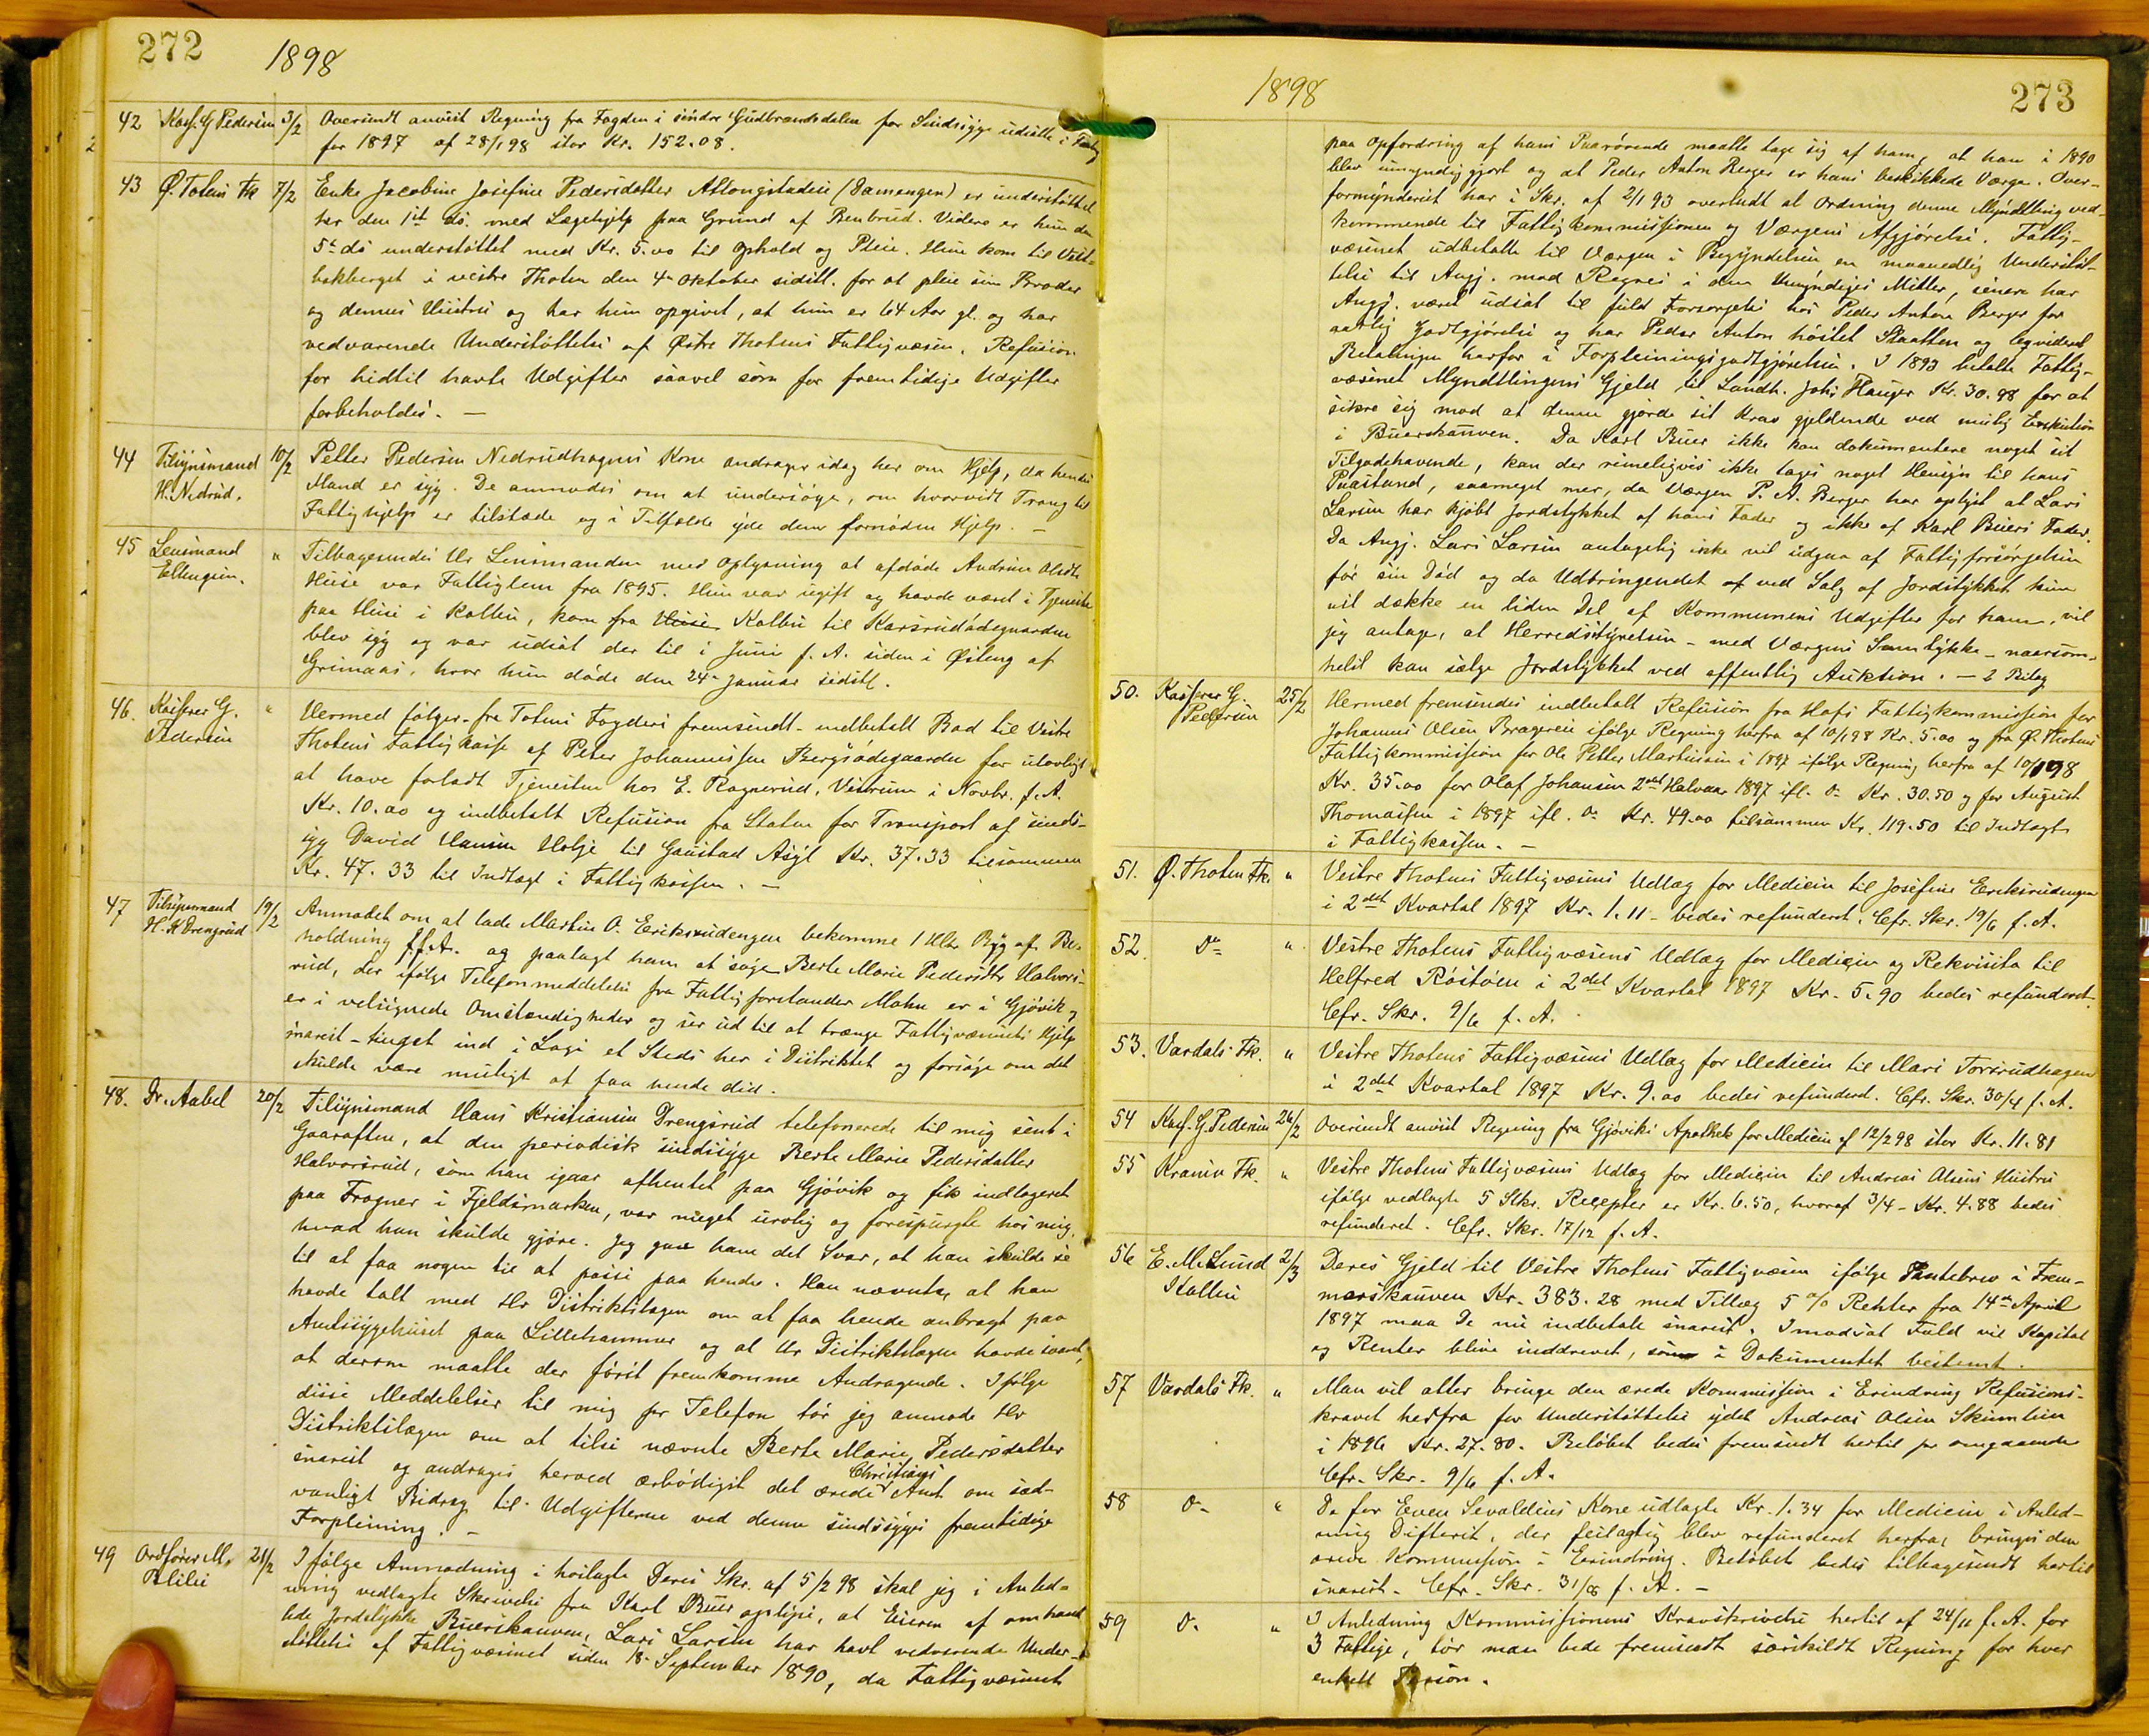 272 1898
42 Kass. G Pedersen 3/2 Oversendt anvist Regning fra Fogden i søndre Gudbrandsdalen for Sindssyge udsatte i
for 1897 af 28/1 98 stor Kr. 152.08.
43 Ø. Totens Fk 7/2 Enke Jacobine Josefine Pedersdatter Alfongstadeie (Damengen) er understøttet
her den 1st ds. med Lægehjelp paa Grund af Benbrud. Videre er hun den
5te ds understøttet med Kr. 5.00 til Ophold og Pleie. Hun kom til
i vestre Thoten den 4de Oktober sidstl. for at pleie sin Broder
og dennes Hustru og har hun opgivet, at hun er 64 Aar gl. og har
vedvarende Understøttelse af Østre Thotens Fattigvæsen. Refusion
for hidtil havte Udgifter saavel som for fremtidige Udgifter
forbeholdes. —
44 Tilsynsmand 10/2 Petter Pedersen Nedrudhagens Kone andrager idag her om Hjelp, da hendes
H. Nedrud. Mand er syg. De anmodes om at undersøge, om hvorvidt Trang til
Fattighjelp er tilstede og i Tilfælde yde dem fornøden Hjelp. —
45 Lensmand " Tilbagesendes Hr Lensmanden med Oplysning at afdøde Andrine Olsdtr
Ellengsen. Huse var Fattiglem fra 1895. Hun var ugift og havde været i Tjeneste
paa Huse i Kolbu, kom fra Huse Kolbu til Karsrudødegaarden
blev syg og var udsat der til i Juni f. A. siden i Østeng af
Grimaas, hvor hun døde den 24de Januar sidstl.
46. Kasserer G. " Hermed følger fra Totens Fogderi fremsendt indbetalt Bod til Vestre
Pedersen Thotens Fattigkasse af Peter Johannessen Bergsødegaarden for ulovligt
at have forladt Tjenesten hos E. Ragnerud, Vestrum i Novbr. f. A.
Kr. 10.00 og indbetalt Refusion fra Staten for Transport af sinds-
syg David Hansen Holje til Gaustad Asyl Kr. 37.33 tilsammen
Kr. 47.33 til Indtægt i Fattigkassen. —
47 Tilsynsmand 19/2 Anmodet om at lade Martin O. Eriksrudengen bekomme 1 Hl. Byg af Be-
H. K Drengsrud holdning f.f.A. og paalagt ham at søge Berte Marie Pedersdtr Halvors-
rud, der ifølge Telefonmeddelelse fra Fattigforstander Mohn er i Gjøvik og
er i velsignede Omstændigheder og ser ud til at trænge Fattigvæsenets Hjelp
snarest-tingst ind i Logi et Steds her i Distriktet og forsøge om det
skulde være muligt at faa hende did.
48. Dr. Aabel 20/2 Tilsynsmand Hans Kristiansen Drengsrud telefonerede til mig sent i
Gaaraften, at den periodisk sindssyge Berte Marie Pedersdatter
Halvorsrud, som han igaar afhentet paa Gjøvik og fik indlogeret
paa Frogner i Fjeldsmarken, var meget urolig og forespurgte hos mig,
hvad han skulde gjøre. Jeg gave ham det Svar, at han skulde se
til at faa nogen til at passe paa hende. Han nævnte, at han
havde talt med Hr Distriktslægen om at faa hende anbragt paa
Amtssygehuset paa Lillehammer og at Hr Distriktslægen havde svaret,
at derom maatte der først fremkomme Andragende. Ifølge
disse Meddelelser til mig pr Telefon tør jeg anmode Hr
Distriktslægen om at tilse nævnte Berte Marie Pedersdatter
snarest og andrages herved ærbødigst det ærede Christians Amt om sæd-
vanligt Bidrag til Udgifterne ved denne sindssyges fremtidige
Forpleining. —
49 Ordfører M. 21/2 Ifølge Anmodning i høilagte Deres Skr. af 5/2 98 skal jeg i Anled-
Blilie ning vedlagte Skrivelse fra Karl Buer oplyse, at Eieren af omhand-
lede Jordstykke Buerskauven, Lars Larsen har havt vedvarende Under-
støttelse af Fattigvæsenet siden 18. September 1890, da Fattigvæsenet
1898 273
paa Opfordring af hans Paarørende maatte tage sig af ham, at han i 1890
blev umyndiggjort og at Peder Anton Berger er hans beskikkede Værge. Over-
formynderiet har i Skr. af 2/1 93 overladt at Ordning denne Myndtling ved-
kommende til Fattigkommissionen og Værgens Afgjørelse. Fattig-
væsenet udbetalte til Værgen i Begyndelsen en maanedlig Understøt-
telse til Angj. mod Regres i den Umyndiges Midler, senere har
Angj. været udsat til fuld Forsørgelse hos Peder Anton Berger for
aarlig Godtgjørelse og har Peder Anton høstet Slaatten og leqvideret
Betalingen herfor i Forpleiningsgodtgjørelsen. I 1893 betalte Fattig-
væsenet Myndtlingens Gjeld til Landh. Johs Hauger Kr. 30.98 for at
sikre sig mod at denne gjorde sit Krav gjeldende ved mulig Exekution
i Buerskauven. Da Karl Buer ikke kan dokumentere noget sit
Tilgodehavende, kan der rimeligvis ikke tages noget Hensyn til hans
Paastand, saameget mer, da Værgen P. A. Berger har oplyst at Lars
Larsen har kjøbt Jordstykket af hans Fader og ikke af Karl Buers Fader.
Da Angj. Lars Larsen antagelig ikke vil udgaa af Fattigforsørgelsen
før sin Død og da Udbringendet af ved Salg af Jordstykket kun
vil dække en liden Del af Kommunens Udgifter for ham, vil
jeg antage, at Herredsstyrelsen – med Værgens Samtykke – naarsom-
helst kan sælge Jordstykket ved offentlig Auktion. — 2 Bilag
50. Kasserer G. 25/2 Hermed fremsendes indbetalt Refusion fra Hofs Fattigkommission for
Pedersen Johannes Olsen Bragereie ifølge Regning herfra af 10/1 98 Kr. 5.00 og fra Ø. Thotens
Fattigkommission for Ole Petter Martinsen i 1897 ifølge Regning herfra af 10/1 98
Kr. 35.00 for Olaf Johansen 2det Halvaar 1897 ifl. Do Kr. 30.50 og for August
Thomassen i 1897 ifl. Do Kr. 49.00 tilsammen Kr. 119.50 til Indtægt
i Fattigkassen. —
51. Ø. Thoten Fk. " Vestre Thotens Fattigvæsens Udlæg for Medicin til Josefine Eriksrudengen
i 2det Kvartal 1897 Kr. 1.11 – bedes refunderet. Cfr. Skr. 19/6 f. A.
52. Do " Vestre Thotens Fattigvæsens Udlæg for Medicin og Rekvisita til
Helfred Røstøen i 2det Kvartal 1897 Kr. 5.90 bedes refunderet.
Cfr. Skr. 9/6 f. A.
53. Vardals Fk. " Vestre Thotens Fattigvæsens Udlæg for Medicin til Mari Torsrudhagen
i 2det Kvartal 1897 Kr. 9.00 bedes refunderet. Cfr. Skr. 30/4 f. A.
54 Kass. G. Pedersen 26/2 Oversendt anvist Regning fra Gjøviks Apothek for Medicin af 12/2 98 stor Kr. 11.81
55 Fk. " Vestre Thotens Fattigvæsens Udlæg for Medicin til Andreas Olsens Hustru
ifølge vedlagte 5 Stkr. Recepter er Kr. 6.50, hvoraf 3/4 – Kr. 4.88 bedes
refunderet. Cfr. Skr. 17/12 f. A.
56 E. M. Lund 2/3 Deres Gjeld til Vestre Thotens Fattigvæsen ifølge Pantebrev i Frem-
Kolbu marskauven Kr. 383.28 med Tillæg 5 % Renter fra 14de April
1897 maa De nu indbetale snarest. I modsat Fald vil Kapital
og Renter blive inddrevet, som i Dokumentet bestemt.
57 Vardals Fk. " Man vil atter bringe den ærede Kommission i Erindring Refusions-
kravet herfra for Understøttelse ydet Andreas Olsen Skumlien
i 1896 Kr. 27.80. Beløbet bedes fremsendt hertil pr omgaaende
Cfr. Skr. 9/6 f. A.
58 Do " De for Even Sevaldeies Kone udlagte Kr. 1.34 for Medicin i Anled-
ning Difterit, der feilagtig blev refunderet herfra, bringes den
ærede Kommission i Erindring. Beløbet bedes tilbagesendt hertil
snarest. Cfr. Skr. 31/8 f. A. —
59 Do " I Anledning Kommissionens Kravskrivelse hertil af 24/11 f. A. for
3 Fattige, tør man bede fremsendt særskildt Regning for hver
enkelt Person.